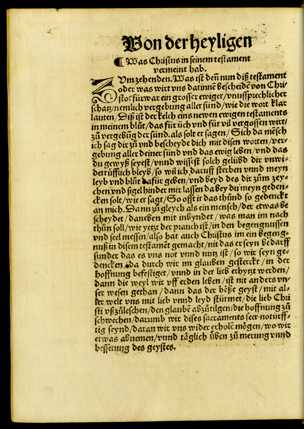 Von der heyligen
¶ Was Christus in seinem testament
vermeint hab.
Zum zehenden. Was ist den̄ nun diß testament
oder was wirt vns darinnē bescheidē von Chri
sto? fürwar ein grosser ewiger, vnussprechlicher
schatz, nemlich vergebung aller sünd, wie die wort klar
lauten, Diß ist der kelch eins newen ewigen testaments
in meinem blůt, das für üch vnd für vil vergossen wirt,
zů vergebūg der sünd. als solt er sagen, Sich da mēsch
ich sag dir zů vnd bescheyde dich mit disen worten, ver
gebung aller deiner sünd vnd das ewig leben. vnd das
du gewyß seyest, vnnd wissest solch gelübd dir vnwi-
derrüfflich bleyb, so wil ich daruff sterben vnnd meyn
leyb vnd blůt dafür geben, vnd beyde des dir zům zey-
chen vnd sigel hinder mir lassen da bey du meyn geden-
cken solt, wie er sagt, So offt ir das thůnd so gedenckt
an mich. Dann zů gleych als ein mensch, der etwas be
scheydet, daneben mit inbyndet, was man im nach
thůn soll, wie yetz der pruch ist, in den begengnissen
vnd seel messen, also hat auch Christus im ein begeng-
nuß in disem testamēt gemacht, nit das er seyn bedarff
sunder das es vns not vnnd nun ist, so wir seyn ge-
dencken, da durch wir im glauben gesterckt, in der
hoffnung befestiget, vnnd in der lieb erhytzt werden,
dann die weyl wir vff erden leben, ist nit anders vn-
ser wesen gethan, dann das der böße geyst, mit al-
ler welt vns mit lieb vnnd leyd stürmet, die lieb Chri
sti vßzůleschen, den glaubē abzůtilgen, die hoffnung zů
schwechen, darumb wir dises sacraments seer notürff-
tig seynd, daran wir vns wider erholē mögen, wo wir
etwas abnemen, vnnd täglich üben zů merung vnnd
besserung des geystes.